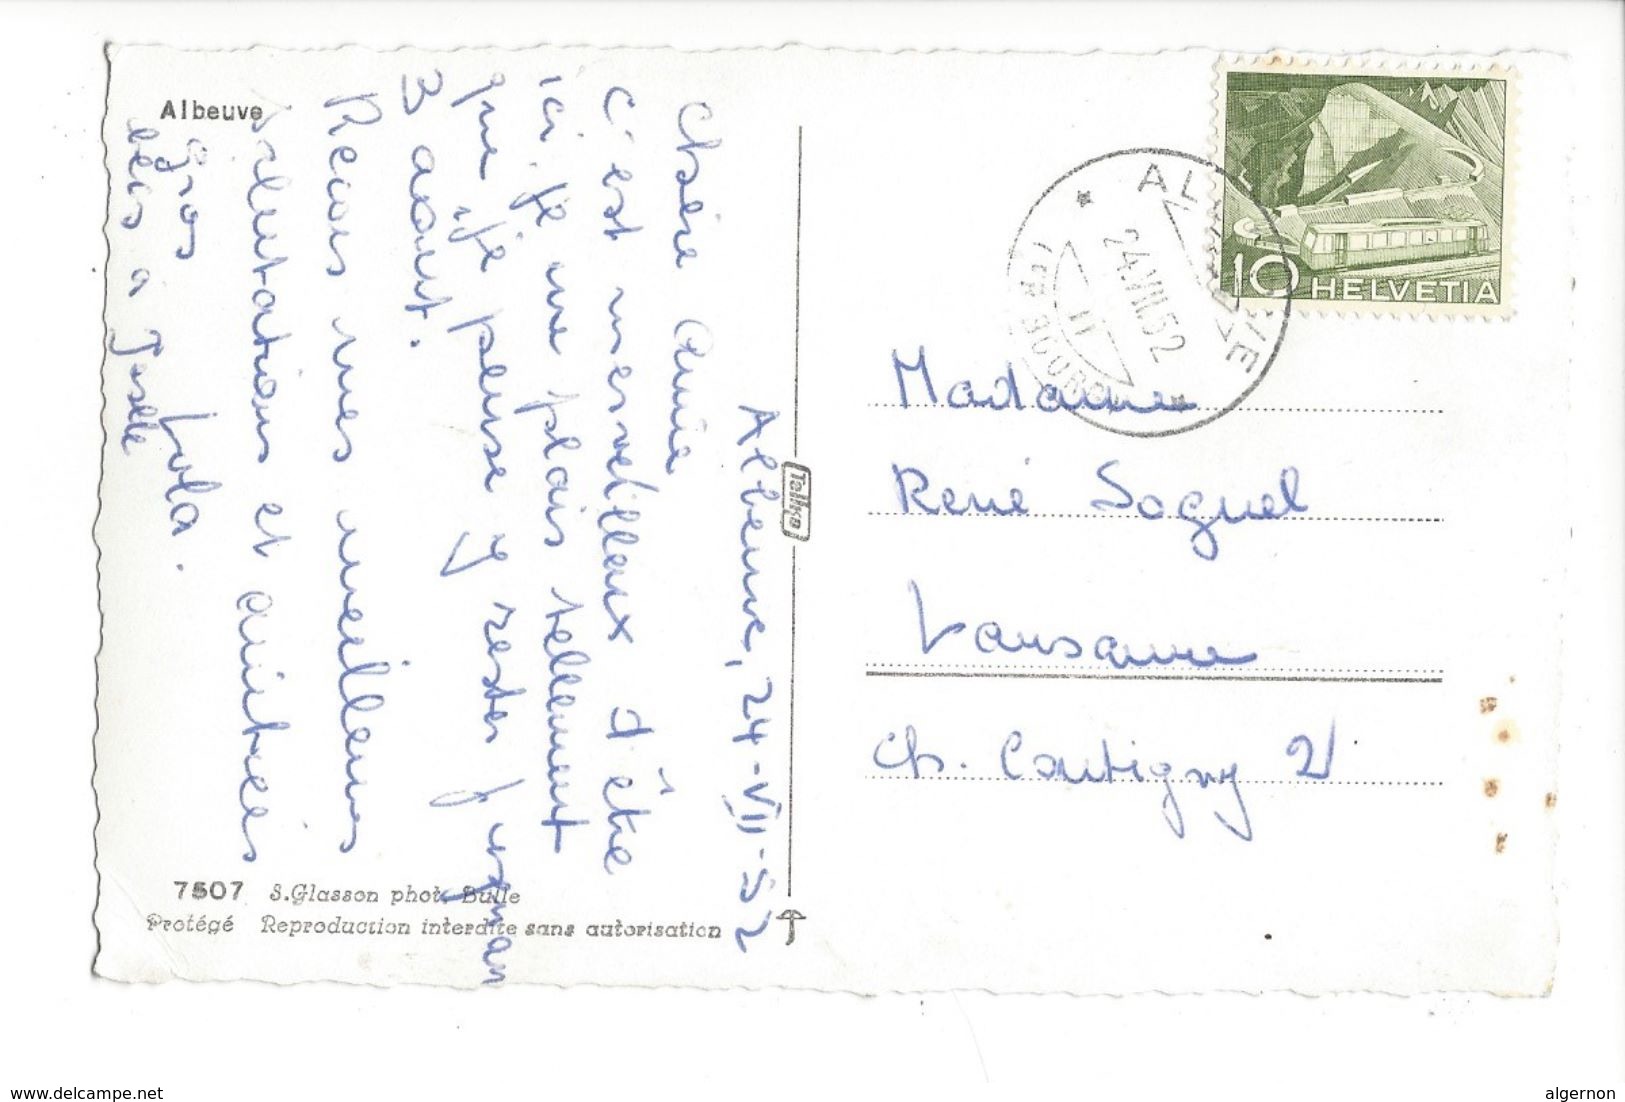 Albeuve
Albeuve, 24-VII-52
Chère Amie
C'est merveilleux d'être
ici, je me plais tellement
que je pense y rester jusqu'au
3 août.
Recois mes meilleures
salutations et amitiés
Lola.
gros
becs a Josele
7507 S.Glasson phot. Bulle
Protégé Reproduction interdite sans autorisation
Tellko
24.VII.52
II
10 HELVETIA
Madame
René Soguel
Lausanne
Ch. Contigny 21
www.delcampe.net
algernon